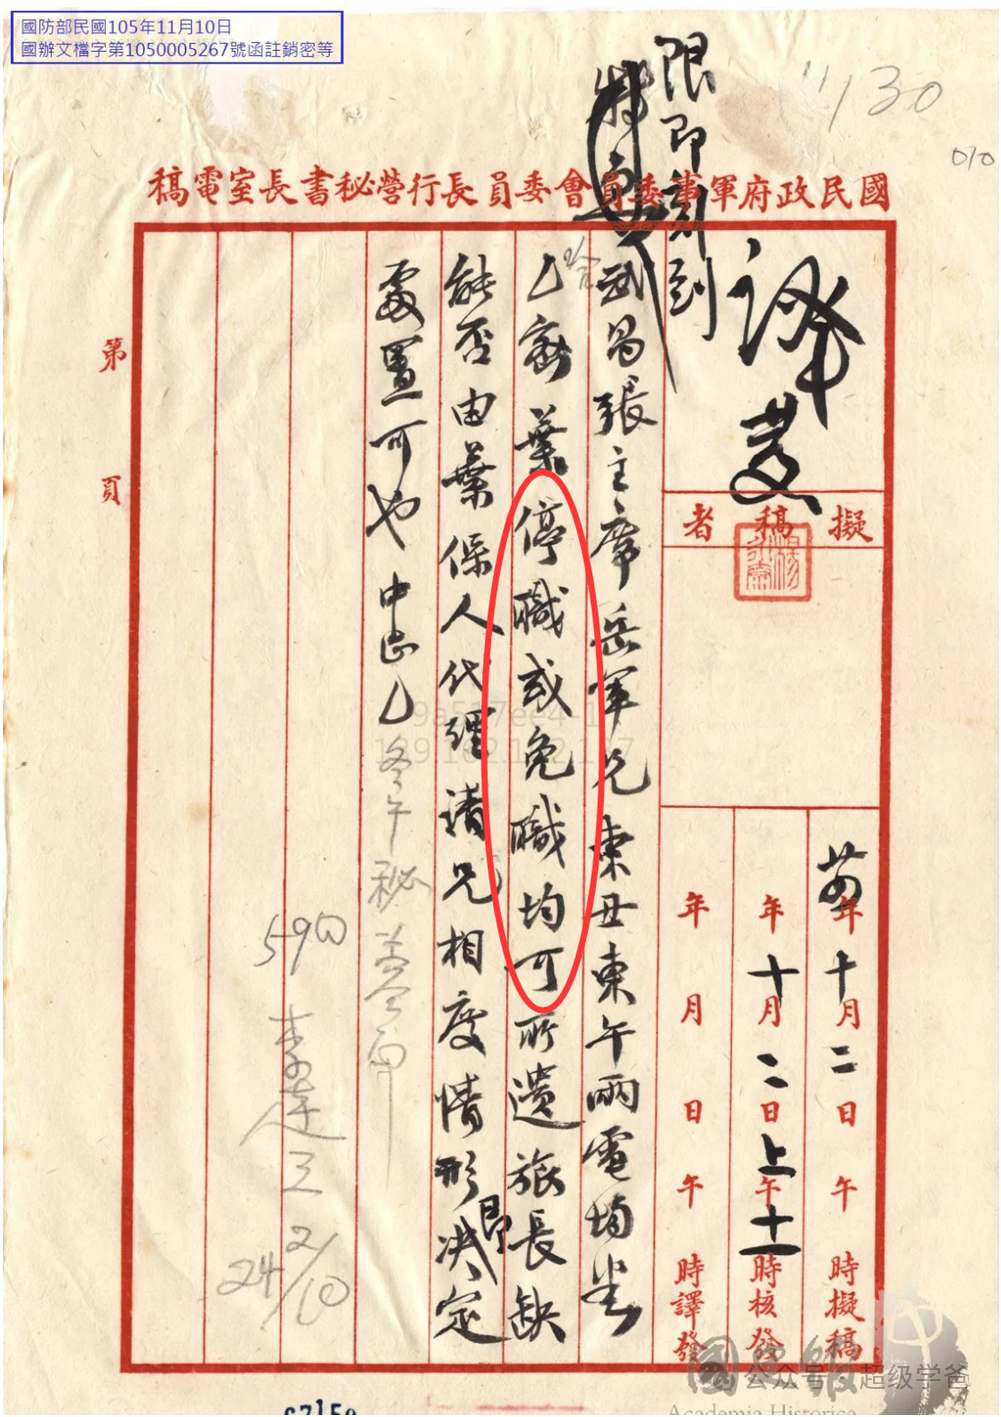 國防部民國105年11月10日
國辦文檔字第1050005267號函註銷密等
11/30
010
限即刻到
特急
國民政府軍事委員會委員長行營秘書長室電稿
譯發
擬稿者
廿四年十月二日午時擬稿
年十月二日上午十一時核發
年月日午時譯發
武昌張主席岳軍兄東丑東午兩電均悉
乙新葉停職或免職均可所遺旅長缺
能否由葉保人代理請兄相度情形決定
即
處置可也中正
冬午秘蓉
590
李達三
2/10
24
第頁
9a517ee4-1
國史館
Academia Historica
公众号·超级学爸
67150